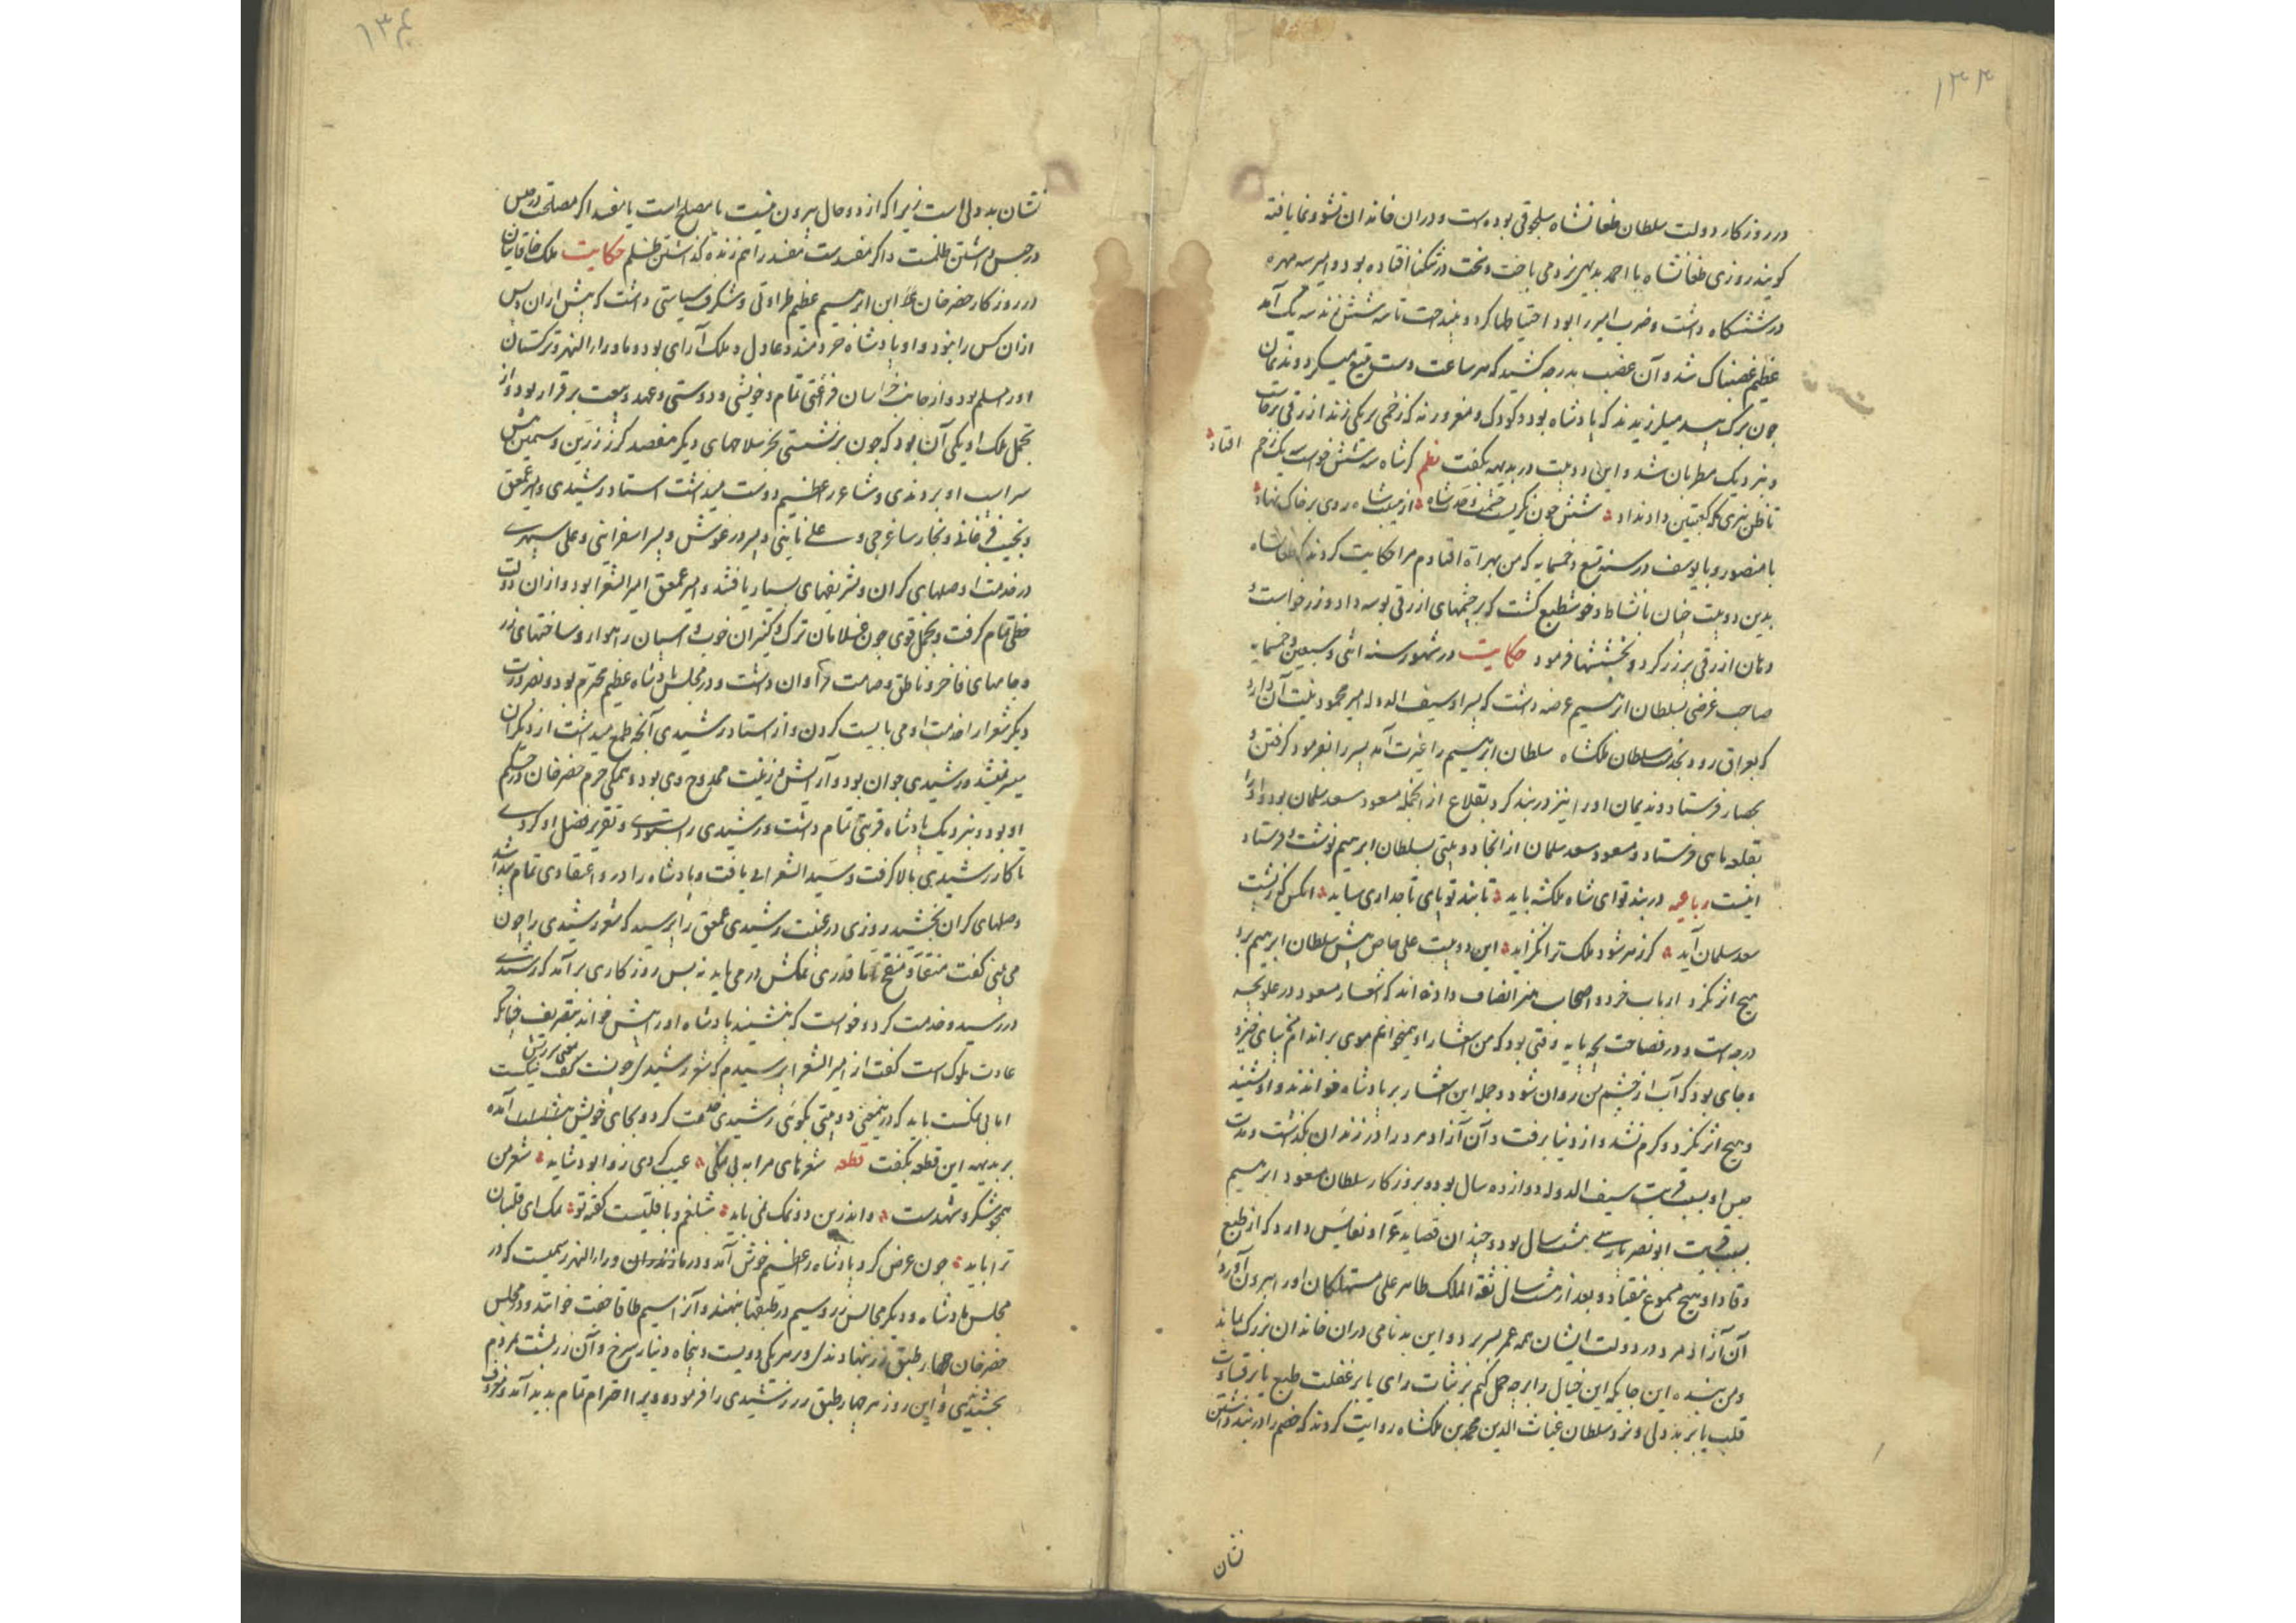 ۱۳۳
در روزکار دولت سلطان طغانشاه سلجوقی بوده است و دران خاندان نشو و نما یافته
کویند روزی طغانشاه با احمد بدیهی نرد می باخت و تخت در تنکنا افتاده بود و امیر سه مهره
در ششکاه داشت و ضرب امیر را بود احتیاطها کرد و بینداخت تا سه شش زند سه یک آمد
عظیم غضبناک شد و آن غضب بدرجه کشید که هر ساعت دست بتیغ میکرد و ندیمان
چون برک بید میلرزیدند که پادشاه بود و کودک و مغرور نه که زخمی بر یکی زند ازرقی برخاست
و بنزدیک مطربان شد و این دو بیت در بدیهه بکفت نظم کر شاه سه شش خواست یک زخم افتاد
تا ظن نبری که کعبتین داد نداد شش چون نکریست حشمت حضرت شاه از هیبت شاه روی بر خاک نهاد
با منصور و با یوسف در سنه تسع و خمسمایه که من بهراة افتادم مرا حکایت کردند که طغانشاه
بدین دو بیت چنان با نشاط و خوش طبع کشت که بر چشمهای ازرقی بوسه داد و زر خواست و
دهان ازرقی پر زر کرد و بخششها فرمود حکایت در شهور سنه اثنی و سبعین و خمسمایه
صاحب غرضی بسلطان ابرهیم عرضه داشت که پسر او سیف الدوله امیر محمود نیت آن دارد
که بعراق رود بخدمت سلطان ملکشاه سلطان ابرهیم را غیرت آمد پسر را بفرمود کرفتن و
بحصار فرستاد و ندیمان او را نیز در بند کرد بقلاع از انجمله مسعود سعد سلمان بود و او را
بقلعه نای فرستاد و مسعود سعد سلمان از انجا دو بیتی بسلطان ابرهیم نوشت و فرستاد
اینست رباعیه در بند تو ای شاه ملکشه باید تا بند تو پای تاجداری ساید انکس که ز پشت
سعد سلمان آید کر زهر شود ملک ترا نکزاید این دو بیت علی خاص پیش سلطان ابرهیم برد
هیچ اثر نکرد ارباب خرد و اصحاب هنر انصاف داده اند که اشعار مسعود در علو بچه
درجه است و در فصاحت بچه پایه وقتی بود که من اشعار او همیخوانم موی بر اندامم بپای خیزد
و جای بود که آب از چشم من روان شود و جمله این اشعار بر پادشاه خواندند و او شنید
و هیچ اثر نکرد و کرم نشد و از دنیا برفت و آن آزاد مرد را در زندان بکذاشت و مدت
حبس او بسبب قربت سیف الدوله دوازده سال بود و بروزکار سلطان مسعود ابرهیم
بسبب قربت ابو نصر پارسی هشت سال بود و چندان قصاید غرا و نفایس دارد که از طبع
وقاد او هیچ مسموع نیفتاد و بعد از هشت سال ثقة الملک طاهر علی مشکان او را بیرون آورد
آن آزاد مرد در دولت ایشان همه عمر بسر برد و این بدنامی دران خاندان بزرک بماند
و من بنده این جایکه این خیال را بر چه حمل کنم بر ثبات رای یا بر غفلت طبع یا بر قساوت
قلب یا بر بددلی و نزد سلطان غیاث الدین محمد بن ملکشاه روایت کردند که خصم را در بند داشتن
نشان
۱۳۴
نشان بددلی است زیرا که از دو حال بیرون نیست یا مصلح است یا مفسد اکر مصلحت در حبس
در حبس داشتن ظلمست و اکر مفسدست مفسد را هم زنده کذاشتن ظلم حکایت ملک خاقانیان
در روزکار خضر خان بن ابرهیم عظیم طراوتی و شکرف سیاستی داشت که پیش ازان و پس
ازان کس را نبود و او پادشاه خردمند و عادل و ملک آرای بود و ماوراء النهر و ترکستان
او را مسلم بود و از جانب خراسان فراغتی تمام و خویشی و دوستی و عهد و بیعت برقرار بود و از
تجمل ملک او یکی آن بود که چون برنشستی بجز سلاحهای دیکر هفتصد کرز زرین و سیمین پیش
سر اسب او بردندی و شاعر را عظیم دوست میداشت استاد رشیدی و امیر عمعق
و نجیب فرغانی و نجار ساغرجی و علی نایتی و پسر درغوش و پسر اسفراینی و علی سپهری
در خدمت او صلهای کران و تشریفهای بسیار یافتند و امیر عمعق امیر الشعرا بود و ازان دولت
حظی تمام کرفت و تجمل قوی چون غلامان ترک و کنیزان خوب و اسپان راهوار و ساختهای زر
و جامهای فاخر و ناطق و صامت فراوان داشت و در مجلس پادشاه عظیم محترم بود و بضرورت
دیکر شعرا را خدمت او می بایست کردن و از استاد رشیدی آنچه طمع میداشت از دیکران
میسر نمیشد و رشیدی جوان بود و آرایش و زینت ممدوح وی بود و همکی حرم خضر خان در حکم
او بود و بنزدیک پادشاه قربتی تمام داشت و رشیدی را بستودی و تقریر فضل او کردی
تا کار رشیدی بالا کرفت و سید الشعرائی یافت و پادشاه را در و اعتقادی تمام پیدا شد
و صلهای کران بخشید روزی در غیبت رشیدی عمعق را بپرسید که شعر رشیدی را چون
می بینی کفت منقا و منقح اما قدری نمکش درمی باید نه بس روزکاری برآمد که رشیدی
در رسید و خدمت کرد و خواست که بنشیند پادشاه او را پیش خواند بتضریف چنانکه
عادت ملوکست کفت از امیر الشعرا بپرسیدم که شعر رشیدی چونست کفت نیکست
اما بی نمکست باید که درین معنی دو بیتی بکوئی رشیدی خدمت کرد و بجای خویش بنشست آمده
بر بدیهه این قطعه بکفت قطعه شعرهای مرا به بی نمکی عیب کردی روا بود شاید شعر من
همچو شکر و شهدست و اندرین دو نمک نمی باید شلغم و باقلیست کفته تو نمک ای قلتبان
ترا باید چون عرض کرد پادشاه را عظیم خوش آمد و در ماوراء النهر رسمیست که در
مجلس پادشاه و دیکر مجالس زر و سیم در طبقها بنهند و آنرا سیم طاقا جفت خوانند و در مجلس
خضر خان چهار طبق زر بنهادندی در هر یکی دویست و پنجاه دینار سرخ و آن زر بمشت بمردم
بخشیدی و این روز هر چهار طبق زر رشیدی را فرمود و ویرا احترام تمام پدید آمد و معروف